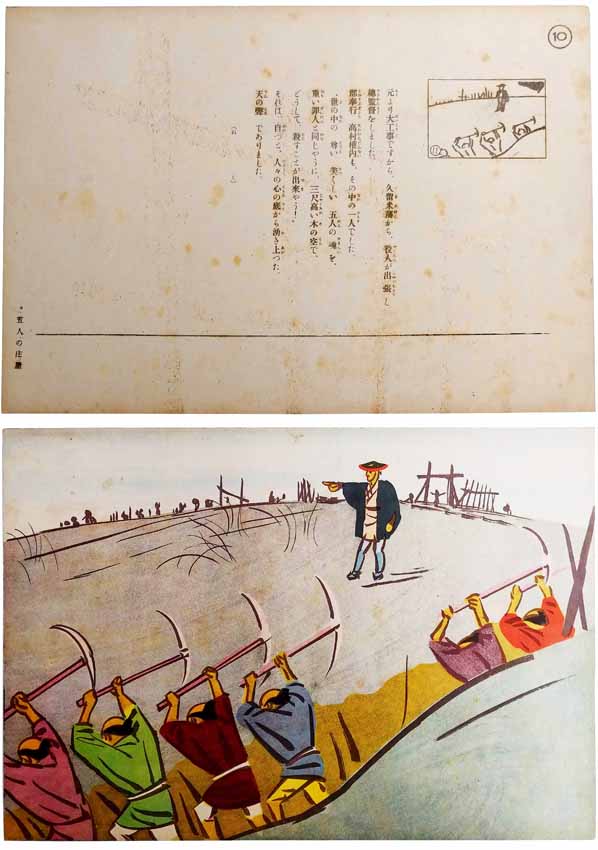 10
11
元より大工事ですから、久留米藩から、役人が出張し
總監督をしました。
郡奉行、高村権内も、その中の一人でした。
、世の中の 尊い 美くしい 五人の 魂を、
重い罪人と同じやうに、三尺高い木の空で、
どうして、殺すことが出來やう！
それは、自つと、人々の心の底から湧き上つた、
天の聲 でありました。
五人の庄屋